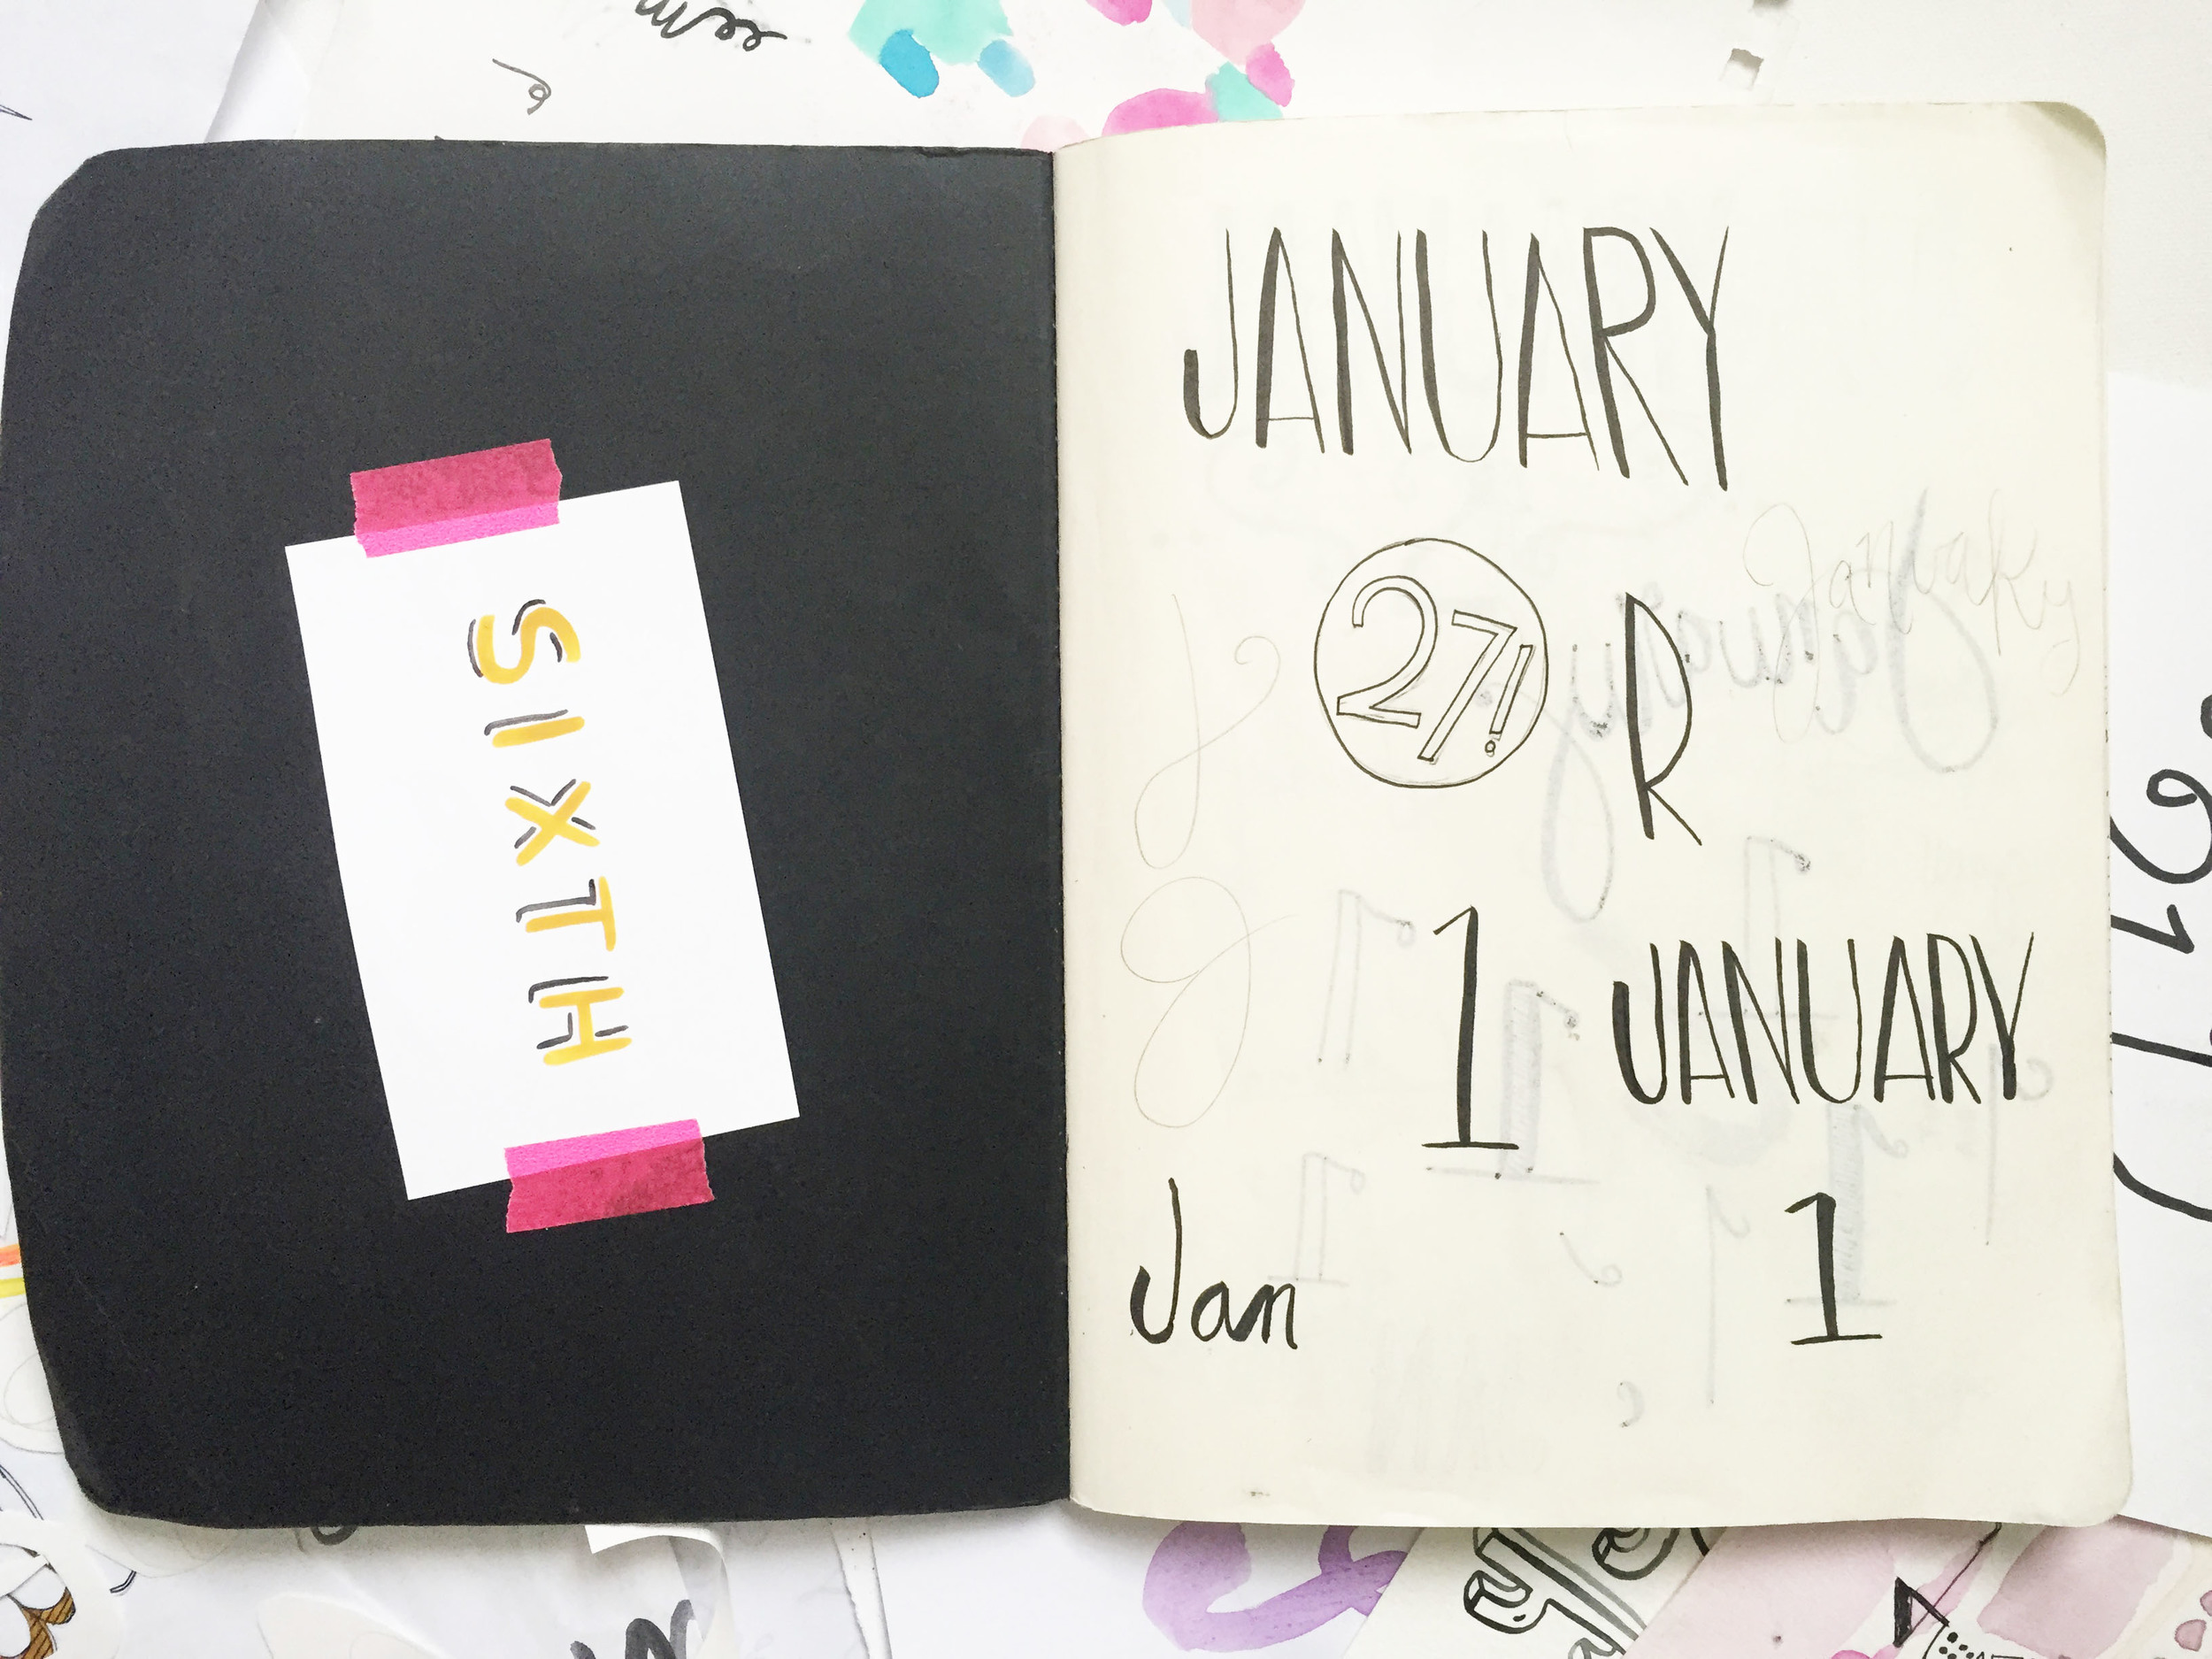 SIXTH
JANUARY
27!
R
1 JANUARY
Jan 1